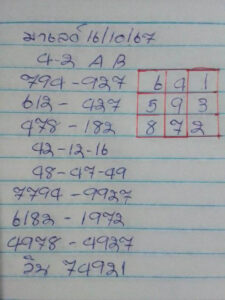 มาเลย์ 16/10/67
4-2 A B
794-927
612-427
478-182
42-12-16
48-47-49
7794-9927
6182-1972
4978-4927
วิน 74921
6 4 1
5 9 3
8 7 2